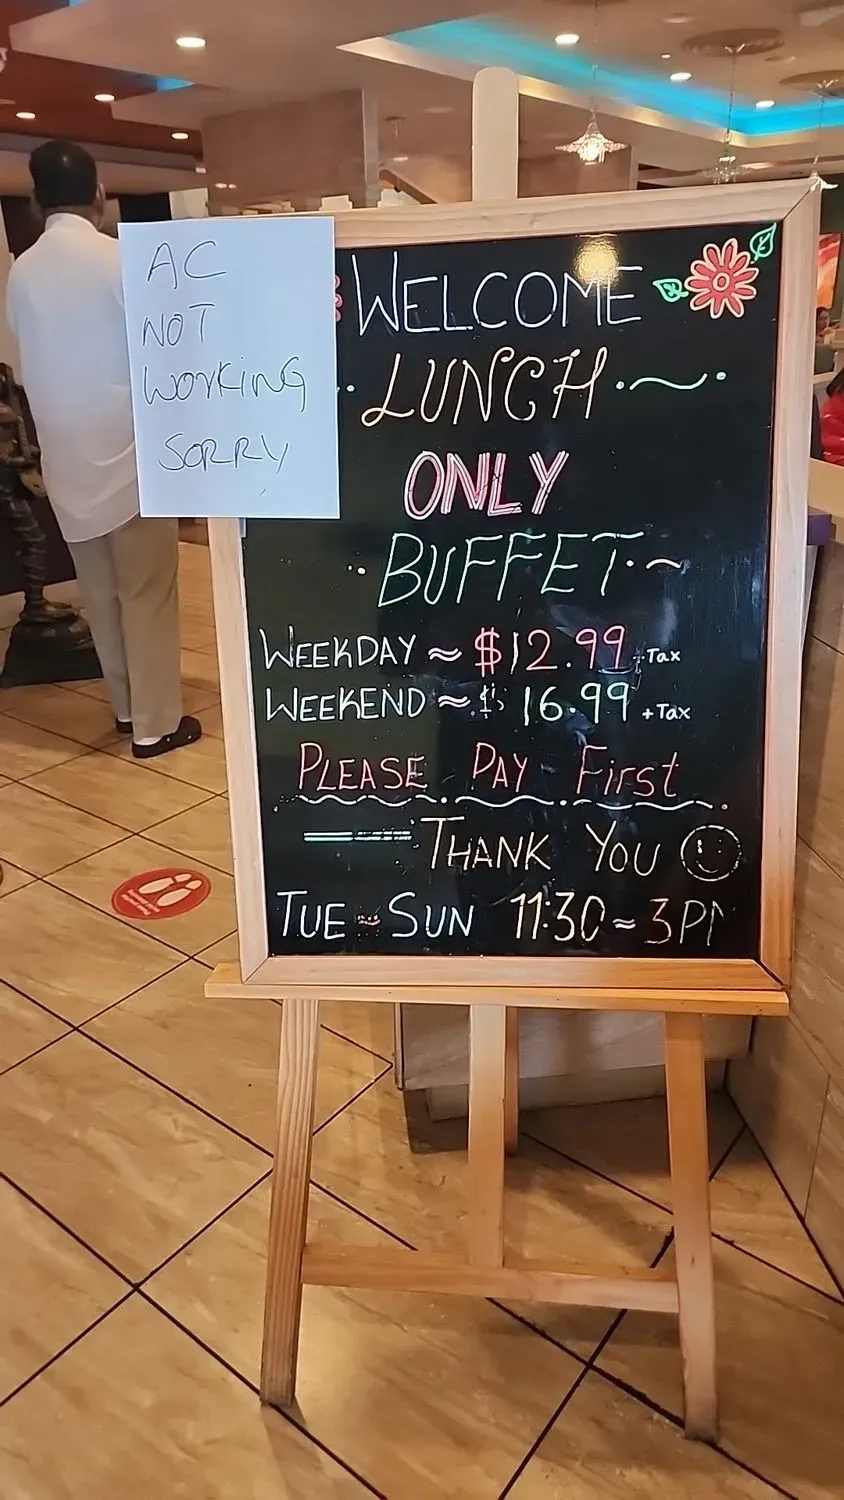 AC
NOT
WORKING
SORRY
WELCOME
LUNCH
ONLY
BUFFET
WEEKDAY ≈ $12.99 +Tax
WEEKEND ≈ $ 16.99 +Tax
PLEASE PAY First
THANK YOU
TUE ~ SUN 11:30 ~ 3PM